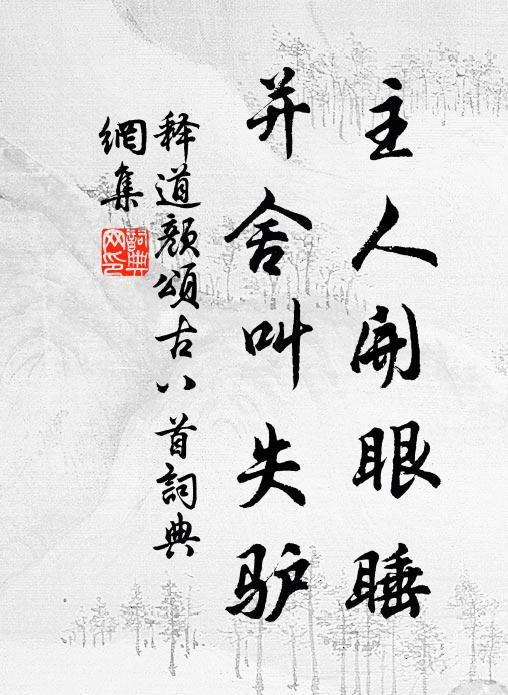 主人開眼睡
并舍叫失驴
释道颜頌古八首詞典
網集
詞典網印